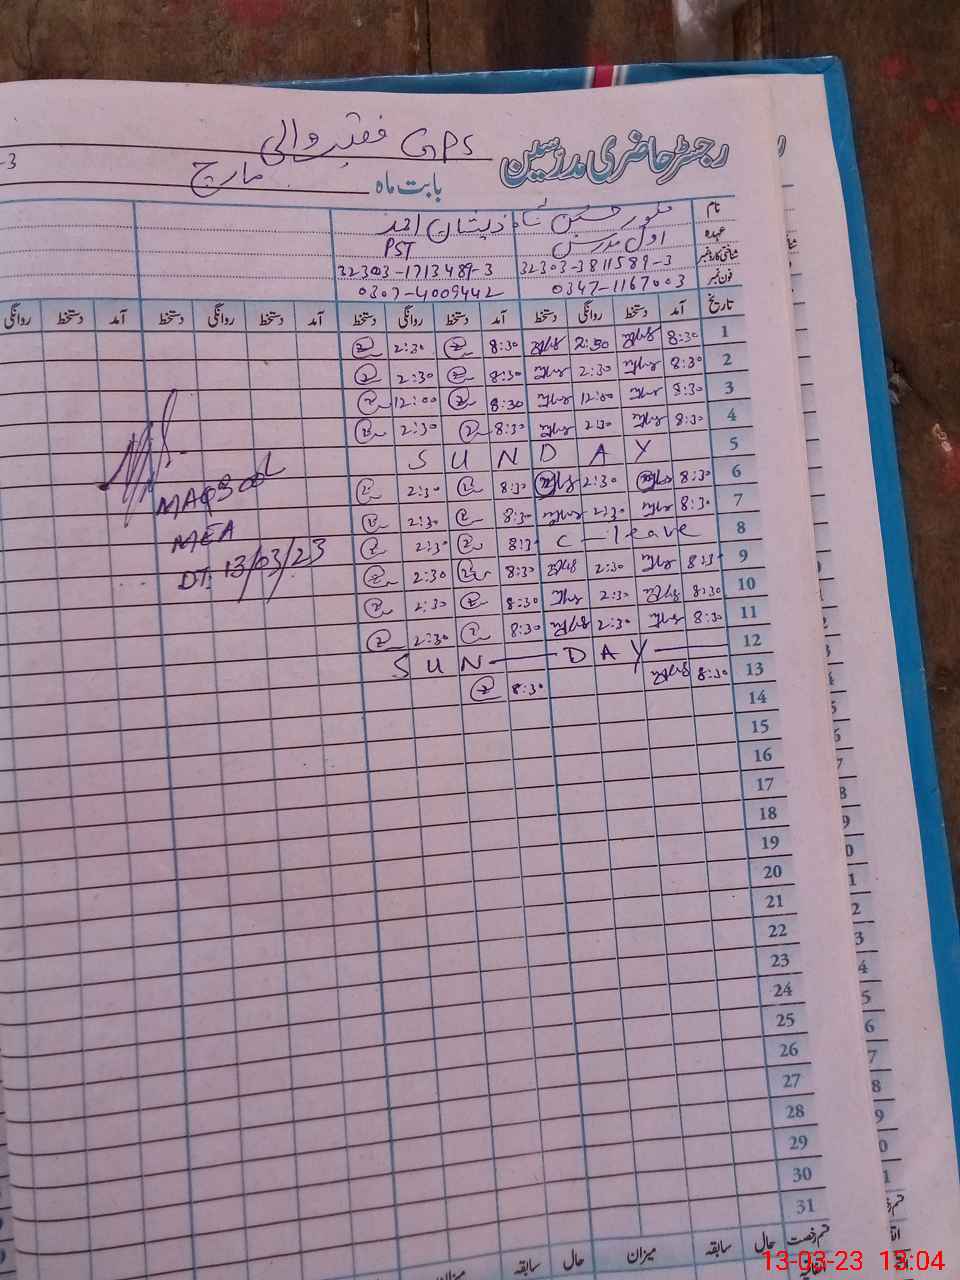 رجسٹر حاضری مدرسین GPS فقیر والی
-3
بابت ماہ مارچ
نام منظور حسین ذیشان احمد
عہدہ اول مدرس PST
شناختی کارڈ نمبر 32303-3811589-3 32303-1713489-3
فون نمبر 0347-1167003 0307-4009442
تاریخ آمد دستخط روانگی دستخط آمد دستخط روانگی دستخط آمد دستخط روانگی دستخط آمد دستخط روانگی
1 8:30 2:30 8:30 2:30
2 8:30 2:30 8:30 2:30
3 8:30 12:00 8:30 12:00
4 8:30 2:30 8:30 2:30
5 SUNDAY
6 8:30 2:30 8:30 2:30
7 8:30 2:30 8:30 2:30
8 C - leave 8:30 2:30
9 8:30 2:30 8:30 2:30
10 8:30 2:30 8:30 2:30
11 8:30 2:30 8:30 2:30
12 SUN DAY
13 8:30 8:30
14
15
16
17
18
19
20
21
22
23
24
25
26
27
28
29
30
31
MAQSOOD
MEA
DT: 13/03/23
حال سابقہ میزان حال سابقہ میزان
13-03-23 13:04